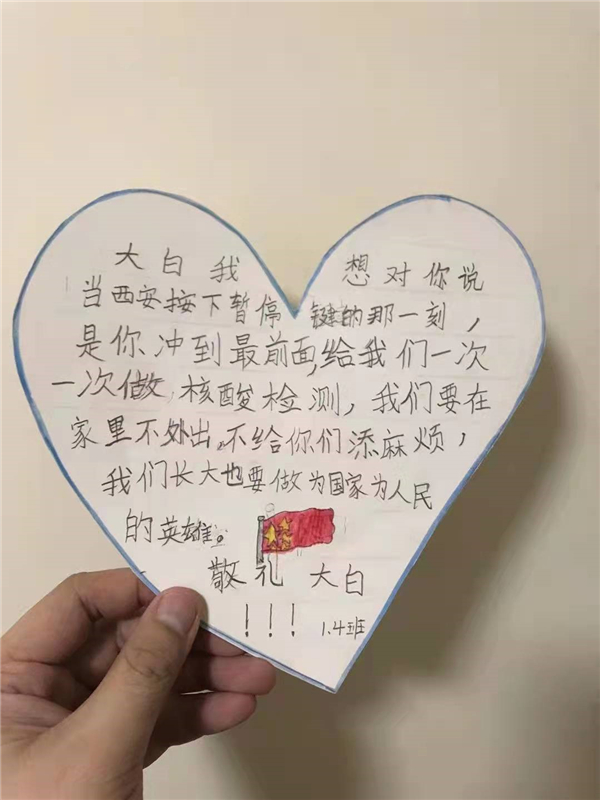 大白我想对你说
当西安按下暂停键的那一刻，
是你冲到最前面,给我们一次
一次做核酸检测，我们要在
家里不外出,不给你们添麻烦，
我们长大也要做为国家为人民
的英雄。
敬礼大白
!!!1.4班